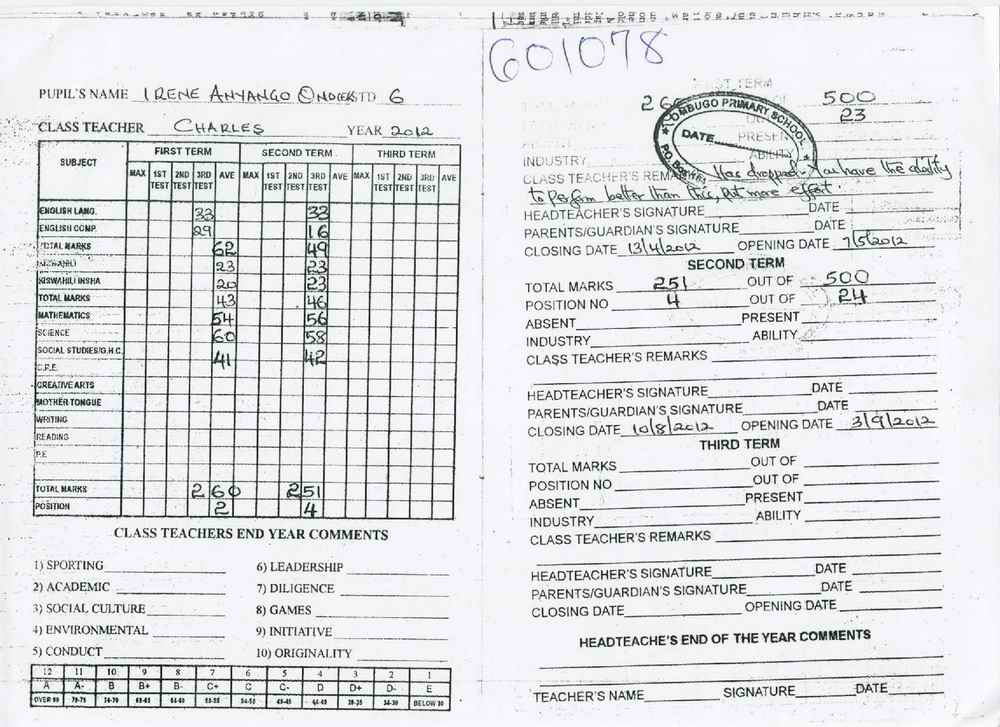 601078
PUPIL'S NAME IRENE ANYANGO STD 6
CLASS TEACHER CHARLES YEAR 2012
SUBJECT FIRST TERM SECOND TERM THIRD TERM
MAX 1ST TEST 2ND TEST 3RD TEST AVE MAX 1ST TEST 2ND TEST 3RD TEST AVE MAX 1ST TEST 2ND TEST 3RD TEST AVE
ENGLISH LANG. 33 33
ENGLISH COMP. 29 16
TOTAL MARKS 62 49
KISWAHILI 23 23
KISWAHILI INSHA 20 23
TOTAL MARKS 43 46
MATHEMATICS 54 56
SCIENCE 60 58
SOCIAL STUDIES/G.H.C. 41 42
C.R.E.
CREATIVE ARTS
MOTHER TONGUE
WRITING
READING
P.E
TOTAL MARKS 260 251
POSITION 2 4
CLASS TEACHERS END YEAR COMMENTS
1) SPORTING 6) LEADERSHIP
2) ACADEMIC 7) DILIGENCE
3) SOCIAL CULTURE 8) GAMES
4) ENVIRONMENTAL 9) INITIATIVE
5) CONDUCT 10) ORIGINALITY
12 11 10 9 8 7 6 5 4 3 2 1
A A- B B+ B- C+ C C- D D+ D- E
BELOW 30
FIRST TERM
500
23
OMBUGO PRIMARY SCHOOL
DATE
PRESENT
INDUSTRY ABILITY
CLASS TEACHER'S REMARKS Has dropped. You have the ability
to perform better than this, put more effort.
HEADTEACHER'S SIGNATURE DATE
PARENTS/GUARDIAN'S SIGNATURE DATE
CLOSING DATE 13/4/2012 OPENING DATE 7/5/2012
SECOND TERM
TOTAL MARKS 251 OUT OF 500
POSITION NO 4 OUT OF 24
ABSENT PRESENT
INDUSTRY ABILITY
CLASS TEACHER'S REMARKS
HEADTEACHER'S SIGNATURE DATE
PARENTS/GUARDIAN'S SIGNATURE DATE
CLOSING DATE 10/8/2012 OPENING DATE 3/9/2012
THIRD TERM
TOTAL MARKS OUT OF
POSITION NO OUT OF
ABSENT PRESENT
INDUSTRY ABILITY
CLASS TEACHER'S REMARKS
HEADTEACHER'S SIGNATURE DATE
PARENTS/GUARDIAN'S SIGNATURE DATE
CLOSING DATE OPENING DATE
HEADTEACHE'S END OF THE YEAR COMMENTS
TEACHER'S NAME SIGNATURE DATE